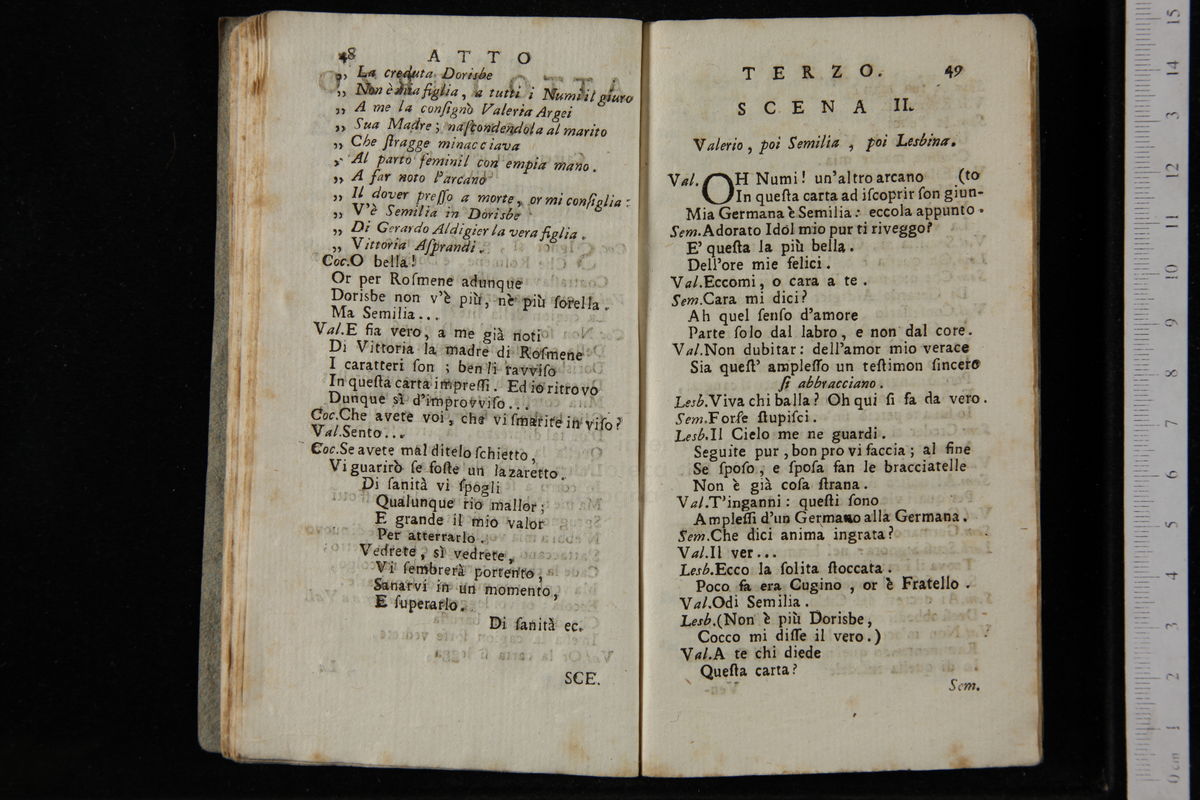 48 ATTO
„ La creduta Dorisbe
„ Non è mia figlia, a tutti i Numi il giuro
„ A me la conſignò Valeria Argei
„ Sua Madre; naſcondendola al marito
„ Che ſtragge minacciava
„ Al parto feminil con empia mano.
„ A far noto l'arcano
„ Il dover preſſo a morte, or mi conſiglia:
„ V'è Semilia in Dorisbe
„ Di Gerardo Aldigier la vera figlia.
„ Vittoria Aſprandi.
Coc.O bella!
Or per Roſmene adunque
Dorisbe non v'è più, nè più ſorella.
Ma Semilia...
Val.E fia vero, a me già noti
Di Vittoria la madre di Roſmene
I caratteri ſon; ben li ravviſo
In queſta carta impreſſi. Ed io ritrovo
Dunque sì d'improvviſo...
Coc.Che avete voi, che vi ſmarite in viſo?
Val.Sento...
Coc.Se avete mal ditelo ſchietto,
Vi guarirò ſe foſte un lazaretto.
Di ſanità vi ſpogli
Qualunque rio mallor;
E grande il mio valor
Per atterrarlo.
Vedrete, sì vedrete,
Vi ſembrerà portento,
Sanarvi in un momento,
E ſuperarlo.
Di ſanità ec.
SCE.
TERZO. 49
SCENA II.
Valerio, poi Semilia, poi Lesbina.
Val.OH Numi! un'altro arcano (to
In queſta carta ad iſcoprir ſon giun-
Mia Germana è Semilia: eccola appunto.
Sem.Adorato Idol mio pur ti riveggo?
E' queſta la più bella.
Dell'ore mie felici.
Val.Eccomi, o cara a te.
Sem.Cara mi dici?
Ah quel ſenſo d'amore
Parte ſolo dal labro, e non dal core.
Val.Non dubitar: dell'amor mio verace
Sia queſt' ampleſſo un teſtimon ſincero
ſi abbracciano.
Lesb.Viva chi balla? Oh qui ſi fa da vero.
Sem.Forſe ſtupiſci.
Lesb.Il Cielo me ne guardi.
Seguite pur, bon pro vi faccia; al fine
Se ſpoſo, e ſpoſa fan le bracciatelle
Non è già coſa ſtrana.
Val.T'inganni: queſti ſono
Ampleſſi d'un Germano alla Germana.
Sem.Che dici anima ingrata?
Val.Il ver...
Lesb.Ecco la ſolita ſtoccata.
Poco fa era Cugino, or è Fratello.
Val.Odi Semilia.
Lesb.(Non è più Dorisbe,
Cocco mi diſſe il vero.)
Val.A te chi diede
Queſta carta?
Sem.
0 cm 1 2 3 4 5 6 7 8 9 10 11 12 13 14 15